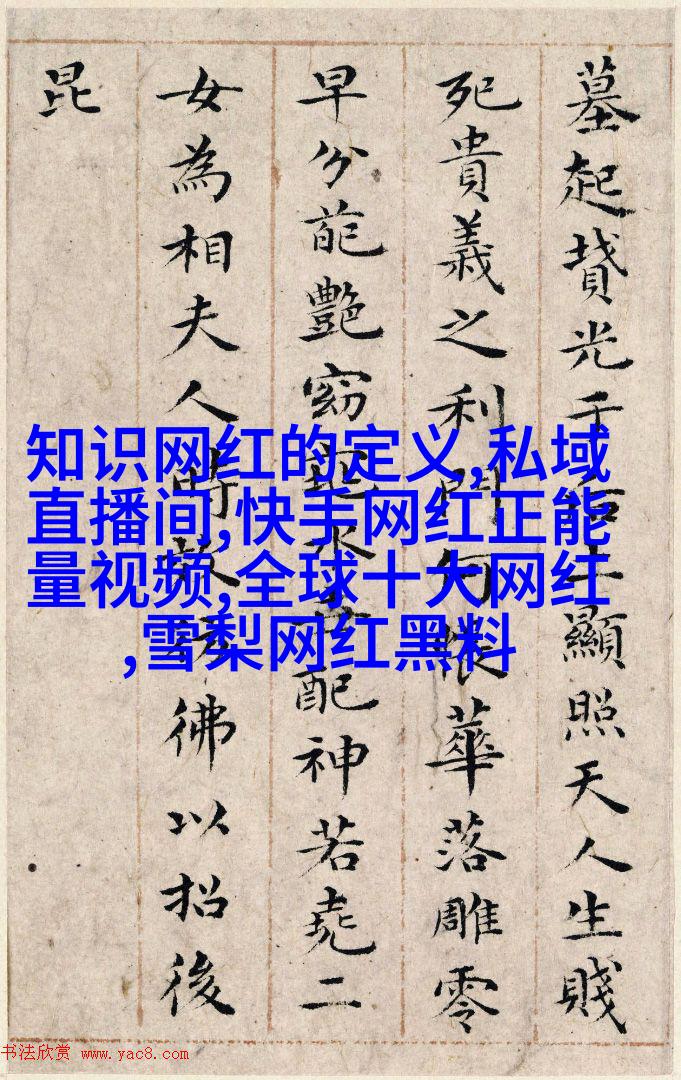 墓起墳光于后土顯照天人生賤
死貴義之利門何悵華落雕零
早分葩艷窈窕永世配神若堯二
女為相夫人時效彷彿以招後
昆
知识网红的定义,私域
直播间,快手网红正能
量视频,全球十大网红
,雪梨网红黑料
书法欣赏 www.yac8.com